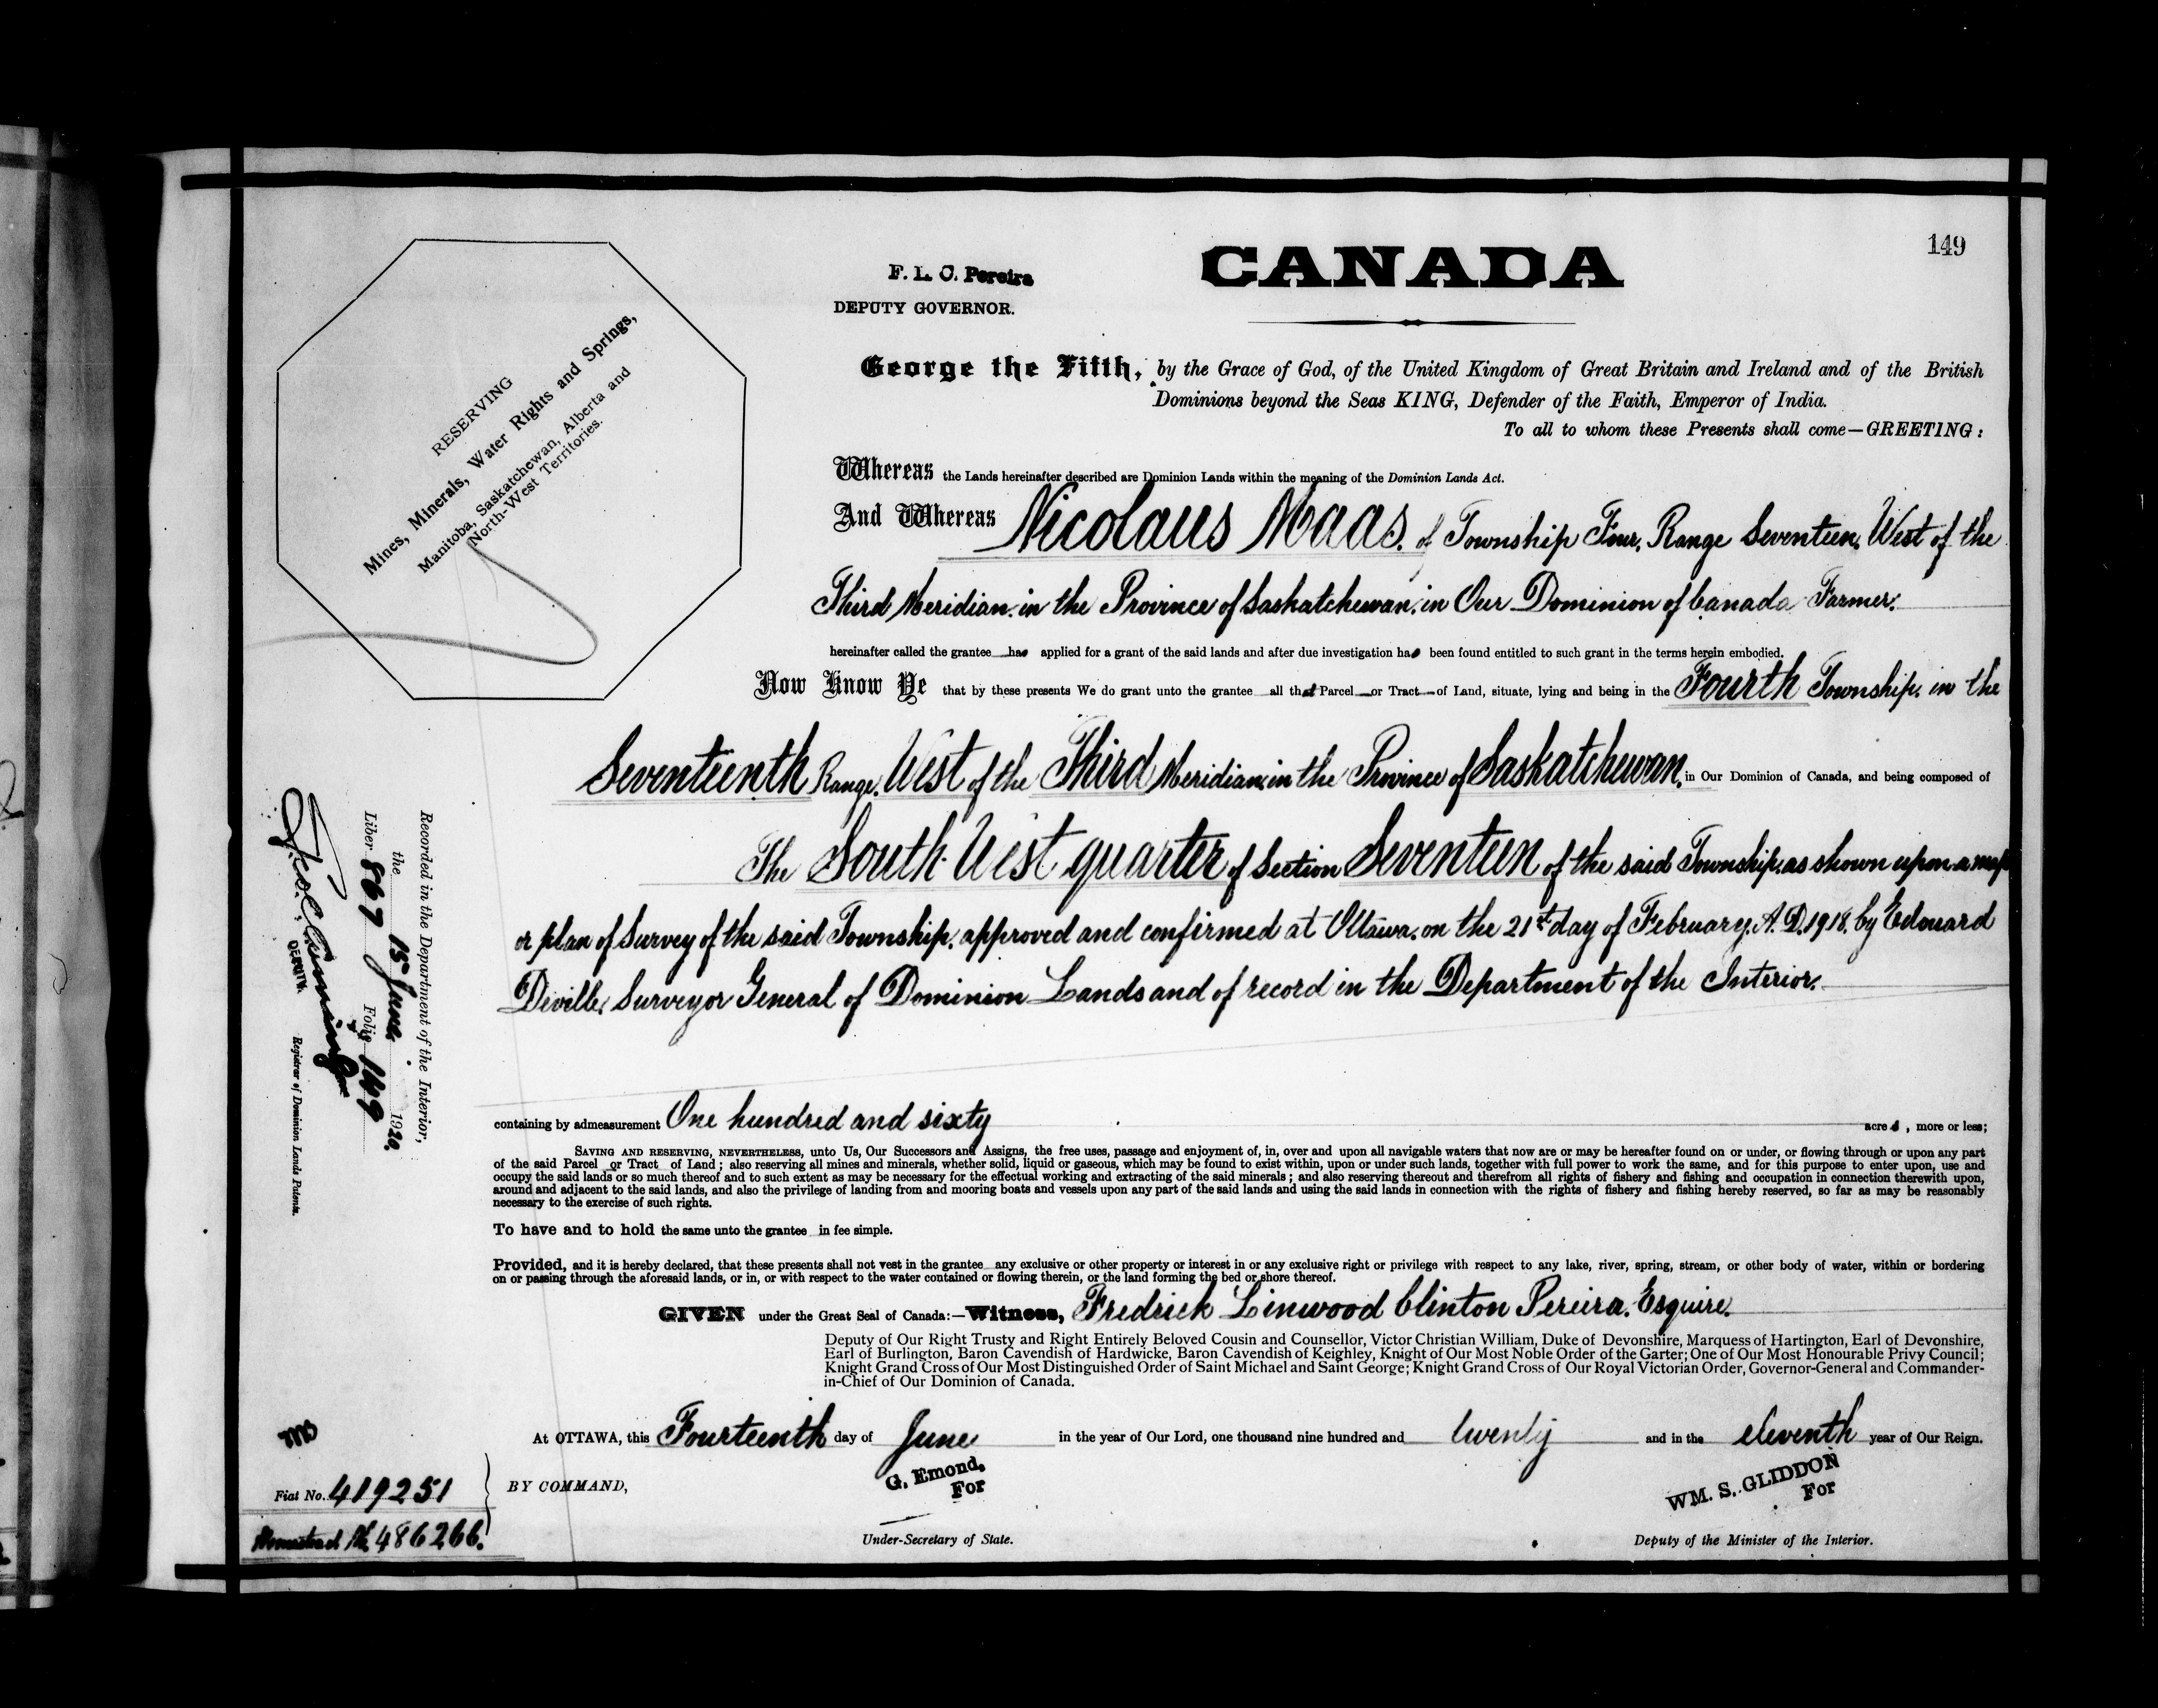 149
CANADA
F. L. C. Pereira
DEPUTY GOVERNOR.
RESERVING
Mines, Minerals, Water Rights and Springs,
Manitoba, Saskatchewan, Alberta and
North-West Territories.
George the Fifth, by the Grace of God, of the United Kingdom of Great Britain and Ireland and of the British
Dominions beyond the Seas KING, Defender of the Faith, Emperor of India.
To all to whom these Presents shall come—GREETING:
Whereas the Lands hereinafter described are Dominion Lands within the meaning of the Dominion Lands Act.
And Whereas Nicolaus Maas. of Township Four, Range Seventeen, West of the
Third Meridian. in the Province of Saskatchewan. in Our Dominion of Canada Farmer.
hereinafter called the grantee has applied for a grant of the said lands and after due investigation has been found entitled to such grant in the terms herein embodied.
Now Know Ye that by these presents We do grant unto the grantee all that Parcel or Tract of Land, situate, lying and being in the Fourth Township. in the
Seventeenth Range. West of the Third Meridian in the Province of Saskatchewan. in Our Dominion of Canada, and being composed of
The South-West quarter of Section Seventeen of the said Township. as shown upon a map
or plan of Survey of the said Township. approved and confirmed at Ottawa. on the 21st day of February. A.D. 1918. by Edouard
Deville. Surveyor General of Dominion Lands and of record in the Department of the Interior.
containing by admeasurement One hundred and sixty acres, more or less;
SAVING AND RESERVING, NEVERTHELESS, unto Us, Our Successors and Assigns, the free uses, passage and enjoyment of, in, over and upon all navigable waters that now are or may be hereafter found on or under, or flowing through or upon any part
of the said Parcel or Tract of Land; also reserving all mines and minerals, whether solid, liquid or gaseous, which may be found to exist within, upon or under such lands, together with full power to work the same, and for this purpose to enter upon, use and
occupy the said lands or so much thereof and to such extent as may be necessary for the effectual working and extracting of the said minerals; and also reserving thereout and therefrom all rights of fishery and fishing and occupation in connection therewith upon,
around and adjacent to the said lands, and also the privilege of landing from and mooring boats and vessels upon any part of the said lands and using the said lands in connection with the rights of fishery and fishing hereby reserved, so far as may be reasonably
necessary to the exercise of such rights.
To have and to hold the same unto the grantee in fee simple.
Provided, and it is hereby declared, that these presents shall not vest in the grantee any exclusive or other property or interest in or any exclusive right or privilege with respect to any lake, river, spring, stream, or other body of water, within or bordering
on or passing through the aforesaid lands, or in, or with respect to the water contained or flowing therein, or the land forming the bed or shore thereof.
GIVEN under the Great Seal of Canada:—Witness, Fredrick Linwood Clinton Pereira. Esquire.
Deputy of Our Right Trusty and Right Entirely Beloved Cousin and Counsellor, Victor Christian William, Duke of Devonshire, Marquess of Hartington, Earl of Devonshire,
Earl of Burlington, Baron Cavendish of Hardwicke, Baron Cavendish of Keighley, Knight of Our Most Noble Order of the Garter; One of Our Most Honourable Privy Council;
Knight Grand Cross of Our Most Distinguished Order of Saint Michael and Saint George; Knight Grand Cross of Our Royal Victorian Order, Governor-General and Commander-
in-Chief of Our Dominion of Canada.
At OTTAWA, this Fourteenth day of June in the year of Our Lord, one thousand nine hundred and twenty and in the eleventh year of Our Reign.
BY COMMAND,
G. Emond,
For
Under-Secretary of State.
WM. S. GLIDDON
For
Deputy of the Minister of the Interior.
Recorded in the Department of the Interior,
the 15 June 1920.
Liber 867 Folio 149
DEPUTY.
Registrar of Dominion Lands Patents.
Fiat No. 419251
Homestead No. 486266.